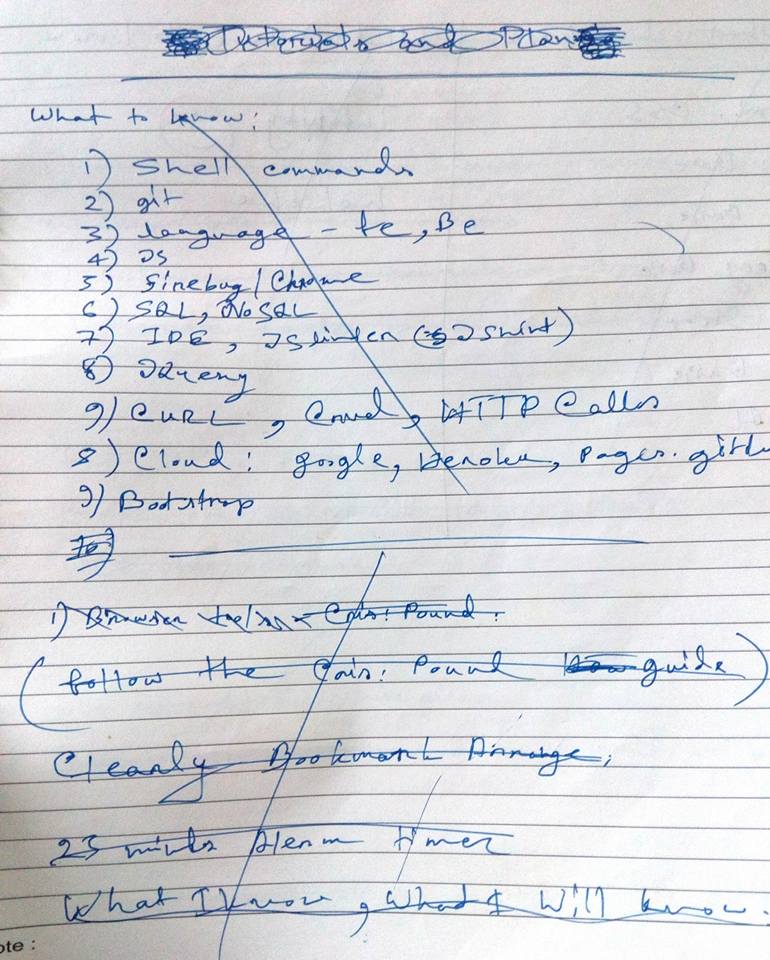 Tutorials and Plan
What to know:
1) Shell commands
2) git
3) language - fe, Be
4) JS
5) firebug/Chrome
6) SQL, NoSQL
7) IDE, JSlinter (JShint)
8) JQuery
9) CURL, Crud, HTTP Calls
8) Cloud: google, Heroku, pages.githu
9) Bootstrap
10)
1) Browser Pound.
(follow the Pound guide)
Clearly Bookmark Arrange,
25 minits Alerm timer
What I know, What I Will know.
ote :